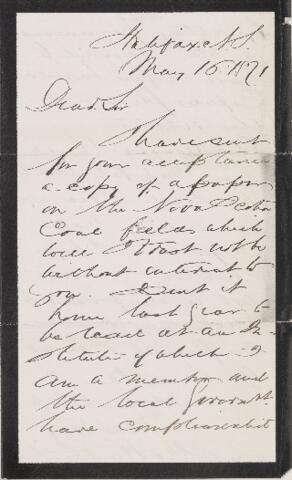 Halifax N.S.
May 16. 1871
Dear Sir
I have sent
for your acceptance
a copy of a paper
on the Nova Scotia
Coal fields which
will I trust not be
without interest to
you. I sent it
home last year to
be read at an In-
stitute of which I
am a member and
the local Governmt.
have complimented